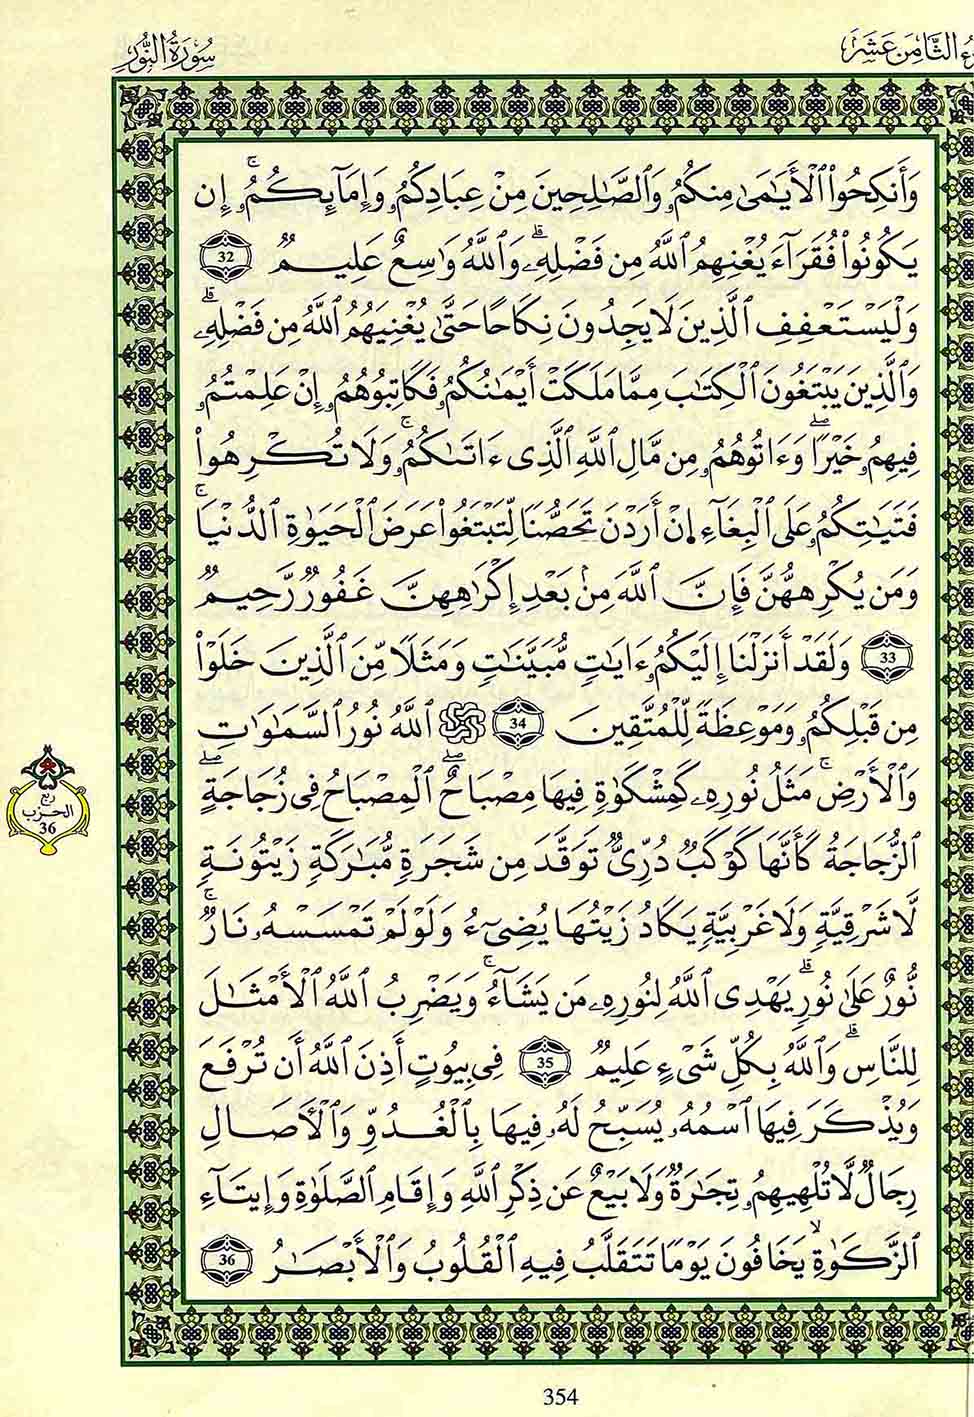 سُورَةُ النُّورِ
الثَّامِنَ عَشَرَ
وَأَنكِحُواْ الْأَيَٰمَىٰ مِنكُمُۥ وَالصَّٰلِحِينَ مِنْ عِبَادِكُمُۥ وَإِمَآئِكُمُۥۚ إِن
يَكُونُواْ فُقَرَآءَ يُغْنِهِمُ اللَّهُ مِن فَضْلِهِۦۗ وَاللَّهُ وَٰسِعٌ عَلِيمٌ 32
وَلْيَسْتَعْفِفِ الَّذِينَ لَا يَجِدُونَ نِكَاحًا حَتَّىٰ يُغْنِيَهُمُ اللَّهُ مِن فَضْلِهِۦۗ
وَالَّذِينَ يَبْتَغُونَ الْكِتَٰبَ مِمَّا مَلَكَتْ أَيْمَٰنُكُمُۥ فَكَاتِبُوهُمُۥ إِنْ عَلِمْتُمُۥ
فِيهِمُۥ خَيْرًاۖ وَءَاتُوهُمُۥ مِن مَّالِ اللَّهِ الَّذِى ءَاتَىٰكُمُۥۚ وَلَا تُكْرِهُواْ
فَتَيَٰتِكُمُۥ عَلَى الْبِغَآءِ اِنْ أَرَدْنَ تَحَصُّنًا لِّتَبْتَغُواْ عَرَضَ الْحَيَوٰةِ الدُّنْيَاۚ
وَمَن يُكْرِههُّنَّ فَإِنَّ اللَّهَ مِنۢ بَعْدِ إِكْرَٰهِهِنَّ غَفُورٌ رَّحِيمٌ
33 وَلَقَدْ أَنزَلْنَا إِلَيْكُمُۥ ءَايَٰتٍ مُّبَيَّنَٰتٍ وَمَثَلًا مِّنَ الَّذِينَ خَلَوْاْ
مِن قَبْلِكُمُۥ وَمَوْعِظَةً لِّلْمُتَّقِينَ 34 اللَّهُ نُورُ السَّمَٰوَٰتِ
وَالْأَرْضِۚ مَثَلُ نُورِهِۦ كَمِشْكَوٰةٍ فِيهَا مِصْبَاحٌۖ الْمِصْبَاحُ فِى زُجَاجَةٍۖ
الزُّجَاجَةُ كَأَنَّهَا كَوْكَبٌ دُرِّىٌّ تَوَقَّدَ مِن شَجَرَةٍ مُّبَٰرَكَةٍ زَيْتُونَةٍ
لَّا شَرْقِيَّةٍ وَلَا غَرْبِيَّةٍ يَكَادُ زَيْتُهَا يُضِىٓءُ وَلَوْ لَمْ تَمْسَسْهُۥ نَارٌۚ
نُّورٌ عَلَىٰ نُورٍۗ يَهْدِى اللَّهُ لِنُورِهِۦ مَن يَشَآءُۚ وَيَضْرِبُ اللَّهُ الْأَمْثَٰلَ
لِلنَّاسِۗ وَاللَّهُ بِكُلِّ شَىْءٍ عَلِيمٌ 35 فِى بِيُوتٍ أَذِنَ اللَّهُ أَن تُرْفَعَ
وَيُذْكَرَ فِيهَا اسْمُهُۥ يُسَبِّحُ لَهُۥ فِيهَا بِالْغُدُوِّ وَالْأَصَالِ
رِجَالٌ لَّا تُلْهِيهِمُۥ تِجَٰرَةٌ وَلَا بَيْعٌ عَن ذِكْرِ اللَّهِ وَإِقَامِ الصَّلَوٰةِ وَإِيتَآءِ
الزَّكَوٰةِۙ يَخَافُونَ يَوْمًا تَتَقَلَّبُ فِيهِ الْقُلُوبُ وَالْأَبْصَٰرُ 36
ربع
الحزب
36
354